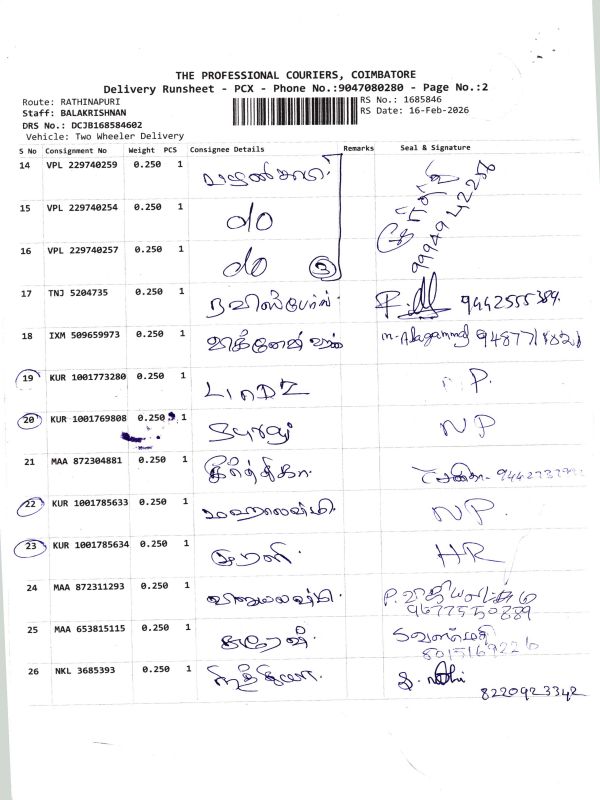 THE PROFESSIONAL COURIERS, COIMBATORE
Delivery Runsheet - PCX - Phone No.:9047080280 - Page No.:2
Route: RATHINAPURI
Staff: BALAKRISHNAN
DRS No.: DCJB168584602
Vehicle: Two Wheeler Delivery
RS No.: 1685846
RS Date: 16-Feb-2026
S No Consignment No Weight PCS Consignee Details Remarks Seal & Signature
14 VPL 229740259 0.250 1
99949 42256
15 VPL 229740254 0.250 1 do
16 VPL 229740257 0.250 1 do 3
17 TNJ 5204735 0.250 1 9442555389.
18 IXM 509659973 0.250 1 m. Alagammal
19 KUR 1001773280 0.250 1 LINDZ NP.
20 KUR 1001769808 0.250 1 NP
21 MAA 872304881 0.250 1
22 KUR 1001785633 0.250 1 மஹாலஷ்மி. NP.
23 KUR 1001785634 0.250 1 முரளி. HR
24 MAA 872311293 0.250 1 P.
9677550889
25 MAA 653815115 0.250 1 சுரேஷ்.
8015169226
26 NKL 3685393 0.250 1 நித்தியா.
8220923342